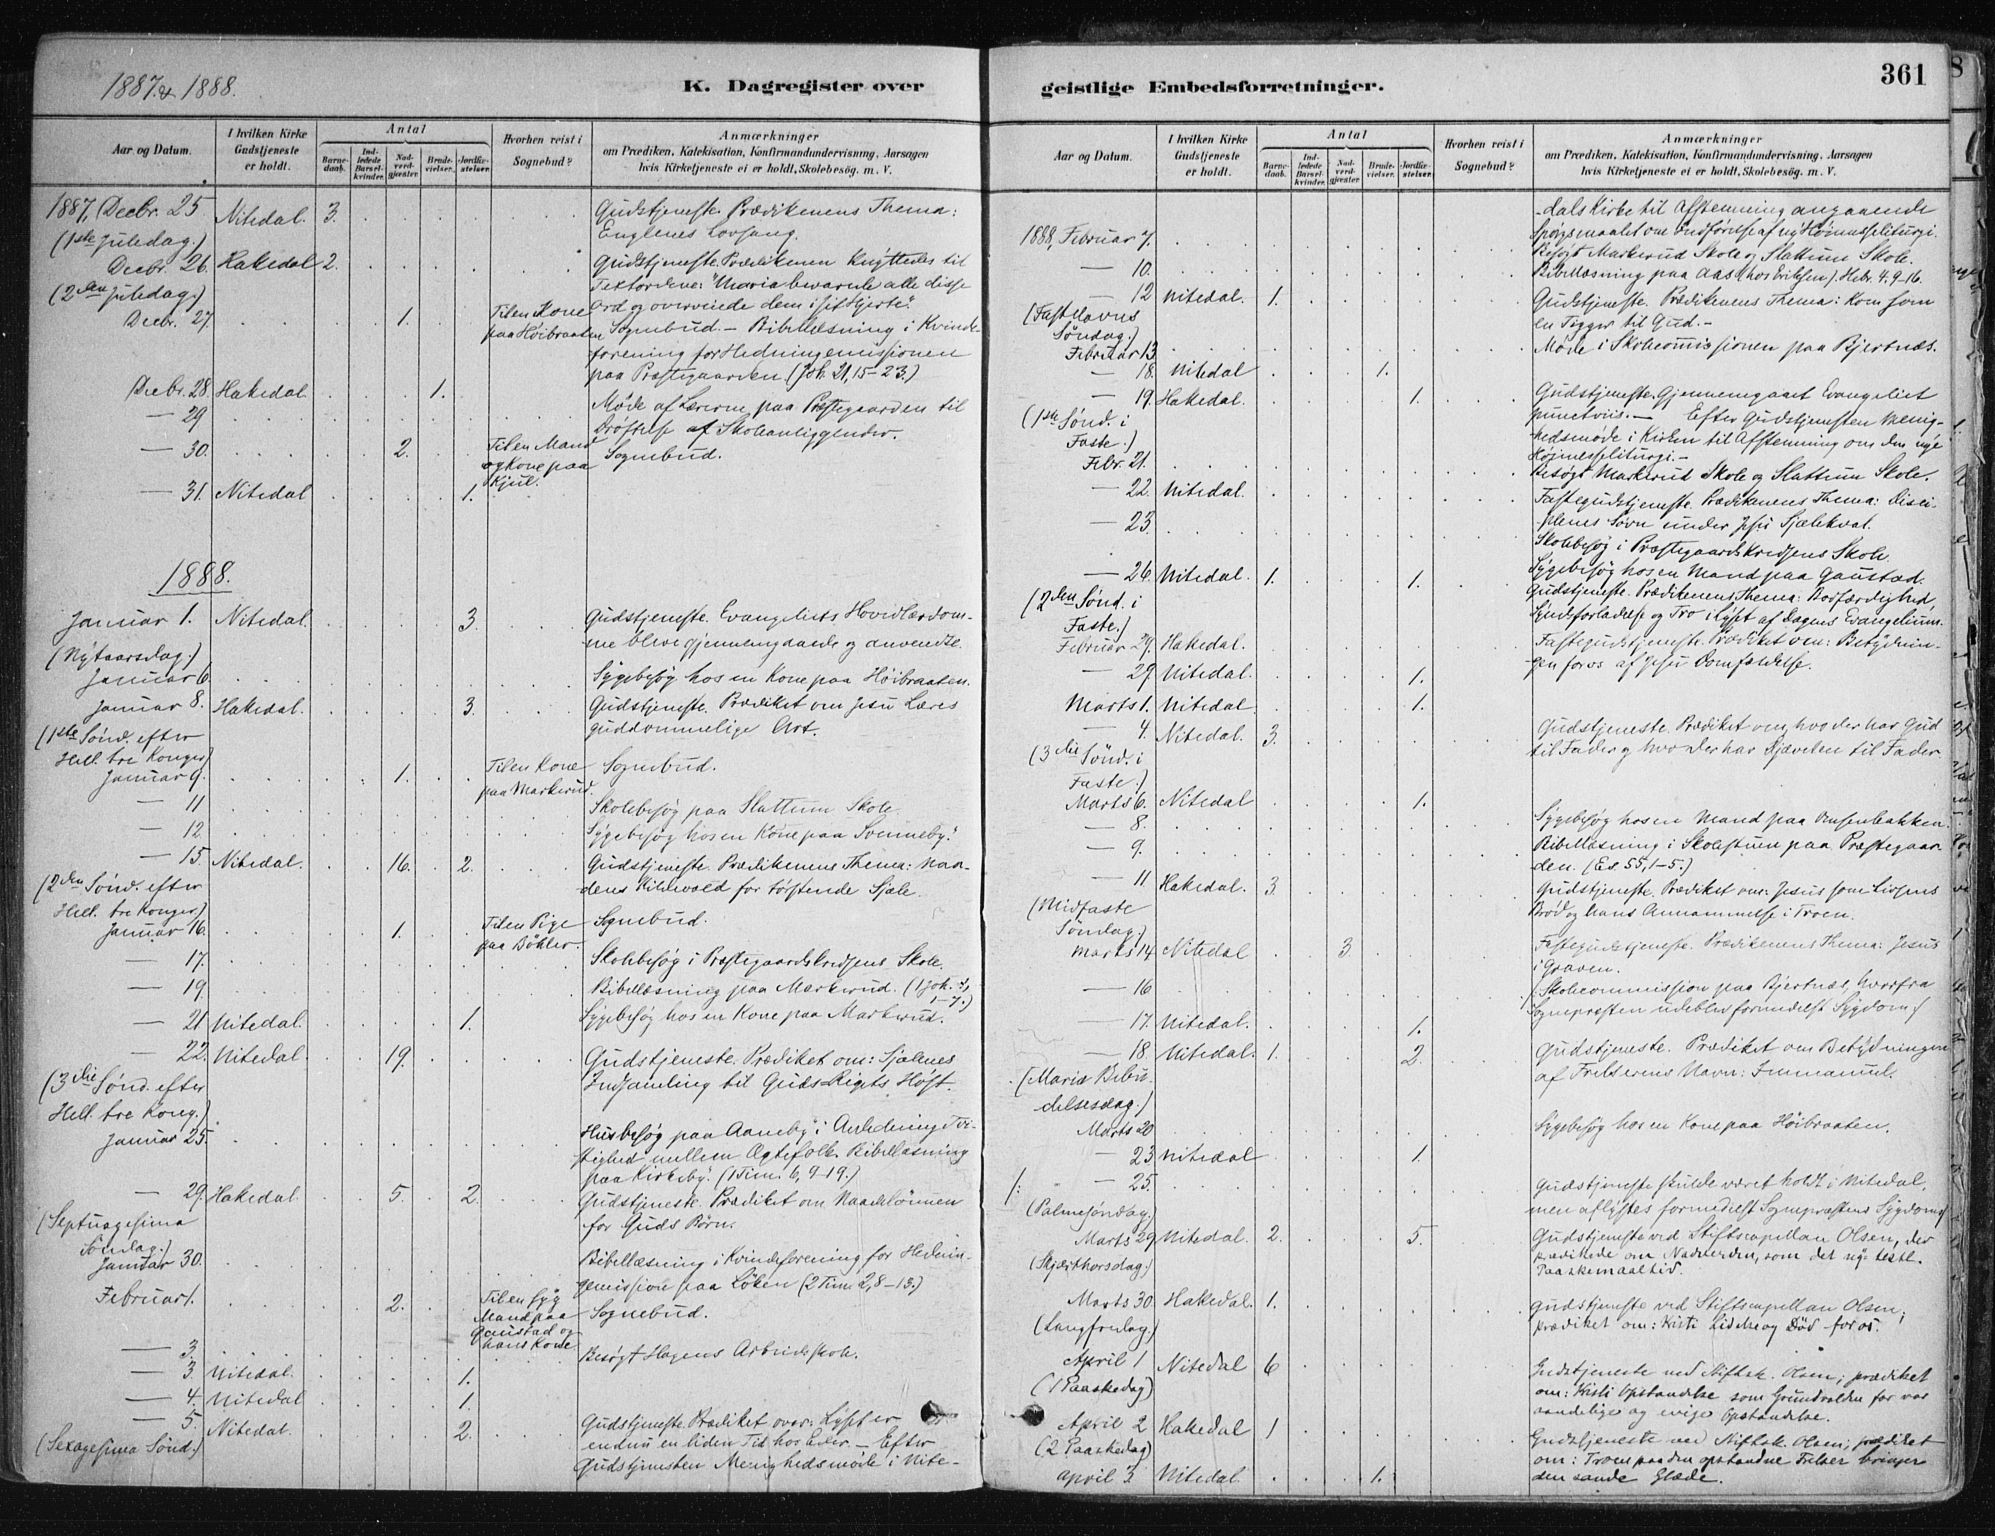 1887 & 1888.
K. Dagregister over
Aar og Datum.
I hvilken Kirke Gudstjeneste er holdt.
Antal
Barnedaab.
Indledede Barselkvinder.
Nadverdgjester.
Brudevielser.
Jordfæstelser.
Hvorhen reist i Sognebud?
Anmærkninger
om Prædiken, Katekisation, Konfirmandundervisning, Aarsagen
hvis Kirketjeneste ei er holdt, Skolebesög. m. V.
1887, Decbr. 25 Nitedal. 3. Gudstjeneste. Prædikenens Thema:
(1ste Juledag.) Englenes Lovsang.
Decbr. 26. Hakedal 2. Gudstjeneste. Prædikenen knyttedes til
(2den Juledag.) Textordene: "Maria bevarede alle disse
Decbr. 27. 1. Til en Kone Ord og overveiede dem i sit Hjerte".
paa Höibraaten Sognebud. – Bibellæsning i Kvinde-
forening for Hedningemissionen
paa Præstegaarden (Joh. 21, 15-23.)
Decbr. 28. Hakedal. 1.
— 29 Møde af Lærerne paa Præstegaarden til
Drøftelse af Skoleanliggender.
— 30. 2. Til en Mand Sognebud.
og Kone paa
Kjul.
— 31. Nitedal 1.
1888.
Januar 1. Nitedal. 3. Gudstjeneste. Evangeliets Hovedlærdom-
(Nytaarsdag.) me bleve gjennemgaaede og anvendte.
Januar 6. Sygebesøg hos en Kone paa Höibraaten.
Januar 8. Hakedal. 3. Gudstjeneste. Prædiket om Jesu Læres
(1ste Sønd. efter guddommelige Art.
Hell. tre Konger)
Januar 9. 1. Til en Kone Sognebud.
paa Markerud.
— 11 Skolebesøg paa Slattum Skole.
— 12 Sygebesøg hos en Kone paa Sonneby.
— 15. Nitedal. 16. 2. Gudstjeneste. Prædikenens Thema: Naa-
(2den Sønd. efter dens Kildevæld for tørstende Sjæle.
Hell. tre Konger)
Januar 16. 1. Til en Pige Sognebud.
paa Böhler.
— 17. Skolebesøg i Præstegaardskredsens Skole.
— 19. Bibellæsning paa Markerud. (1 Joh. 1,
1-7.)
— 21 Nitedal. 1. Sygebesøg hos en Kone paa Markerud.
— 22. Nitedal. 19. Gudstjeneste. Prædiket om: Sjælenes
(3die Sønd. efter Indsamling til Guds Riges Høst.
Hell. tre Kong.)
Januar 25. Husbesøg paa Aaneby i Anledning Tvi-
stighed mellem Ægtefolk. Bibellæsning
paa Kirkeby. (1 Tim. 6, 9-19.)
— 29. Hakedal. 5. 2. Gudstjeneste. Prædiket om Naadelønnen
(Septuagesima for Guds Børn.
Søndag.)
Januar 30. Bibellæsning i Kvindeforening for Hednin-
gemissionen paa Løken (2 Tim 2, 8-13.)
Februar 1. 2. Til en syg Sognebud.
Mand paa
Gaustad og
hans Kone
— 3. Besøgt Hagens Arbeidsskole.
— 3. Nitedal. 1.
— 4. Nitedal 1.
— 5. Nitedal. 2. Gudstjeneste. Prædiket over: Lyset er
(Sexagesima Sønd.) endnu en liden Tid hos Eder. – Efter
Gudstjenesten Menighedsmøde i Nite-
geistlige Embedsforretninger.
361
Aar og Datum.
I hvilken Kirke Gudstjeneste er holdt.
Antal
Barnedaab.
Indledede Barselkvinder.
Nadverdgjester.
Brudevielser.
Jordfæstelser.
Hvorhen reist i Sognebud?
Anmærkninger
om Prædiken, Katekisation, Konfirmandundervisning, Aarsagen
hvis Kirketjeneste ei er holdt, Skolebesög. m. V.
-dals Kirke til Afstemning angaaende
Spørgsmaalet om Indførelse af ny Høimesseliturgi.
1888, Februar 7. Besøgt Markerud Skole og Slattum Skole.
— 10. Bibellæsning paa Aas (hos Eriksen). Hebr. 4. 9-16.
— 12 Nitedal. 1. Gudstjeneste. Prædikenens Thema: Kom som
(Fastelavns en Tigger til Gud. –
Søndag.)
Februar 13 Møde i Skolecommissionen paa Bjertnæs.
— 18. Nitedal 1.
— 19. Hakedal. 1. Gudstjeneste. Gjennemgaaet Evangeliet
(1ste Sønd. i punctvis. – Efter Gudstjenesten Menig-
Faste.) hedsmøde i Kirken til Afstemning om den nye
Høimesseliturgi. –
Febr. 21. Besøgt Markerud Skole og Slattum Skole.
— 22. Nitedal. Fastegudstjeneste. Prædikenens Thema: Disci-
plenes Søvn under Jesu Sjælekval.
— 23. Skolebesøg i Præstegaardskredsens Skole.
Sygebesøg hos en Mand paa Gaustad.
— 26. Nitedal. 1. 1. Gudstjeneste. Prædikenens Thema: Botfærdighed,
(2den Sønd. i Syndsforladelse og Tro i Lyset af Dagens Evangelium.
Faste.)
Februar 29. Hakedal. Fastegudstjeneste. Prædiket om: Betydnin-
gen for os af Jesu Domfældelse.
— 29 Nitedal. 1.
Marts 1. Nitedal. 1.
— 4. Nitedal. 3. Gudstjeneste. Prædiket om, hvo der har Gud
(3die Sønd. i til Fader og hvo der har Djævelen til Fader.
Faste.)
Marts 6. Nitedal 1.
— 8. Sygebesøg hos en Mand paa
— 9. Bibellæsning i Skolestuen paa Præstegaar-
den. (Es. 55, 1-5.)
— 11 Hakedal. 3 Gudstjeneste. Prædiket om: Jesus som Livsens
(Midfaste Brød og hans Annammelse i Troen.
Søndag.)
Marts 14 Nitedal 3 Fastegudstjeneste. Prædikenens Thema: Jesus
i Graven.
— 16 (Skolecommission paa Bjertnæs, hvorfra
Sognepræsten udeblev formedelst Sygdom.)
— 17. Nitedal. 1.
— 18. Nitedal. 1. 2. Gudstjeneste. Prædiket om Betydningen
(Mariæ Bebu- af Frelserens Navn: Immanuel.
delsesdag.)
Marts 20 Sygebesøg hos en Kone paa Höibraaten.
— 23 Nitedal 1.
— 25. Gudstjeneste skulde været holdt i Nitedal,
(Palmesøndag.) men aflystes formedelst Sognepræstens Sygdom.
Marts 29 Nitedal. 2. 5. Gudstjeneste ved Stiftscapellan Olsen, der
(Skjærthorsdag.) prædikede om Nadverden, som det ny-testl.
Paaskemaaltid.
Marts 30 Hakedal. 1. Gudstjeneste ved Stiftscapellan Olsen;
(Langfredag.) prædiket om: Kristi Lidelse og Død for os.
April 1 Nitedal 6 Gudstjeneste ved Stiftsk. Olsen; prædiket
(1 Paaskedag) om: Kristi Opstandelse som Grundvolden for vor
aandelige og evige Opstandelse.
April 2 Hakedal 1 Gudstjeneste ved Stiftsk. Olsen; prædiket
(2 Paaskedag) om: Troen paa den opstandne Frelser bringer
April 3 Nitedal. 1. den sande Glæde.